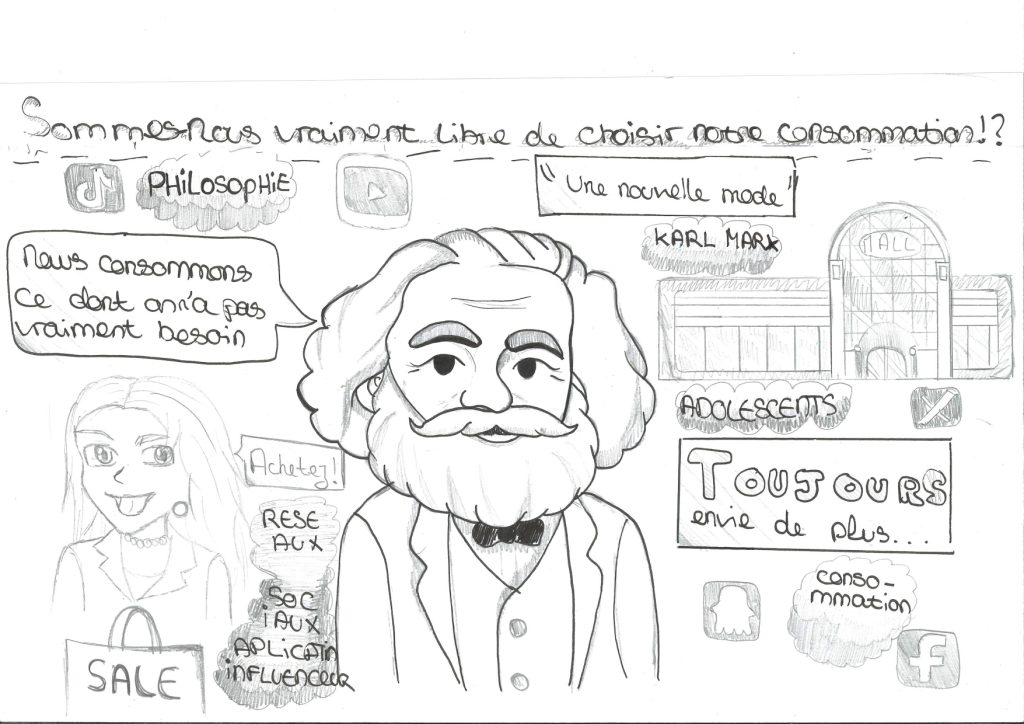 Sommes-Nous vraiment libre de choisir notre consommation!?
PHiLOSOPHiE
"Une nouvelle mode"
KARL MARX
MALL
Nous consommons
Ce dont on n'a pas
vraiment besoin
ADOLESCENTS
Achetez!
TOUJOURS
envie de plus...
RESE
AUX
SOC
iAUX
APLiCATiN
iNFLUENCEUR
conso-
mmation
SALE